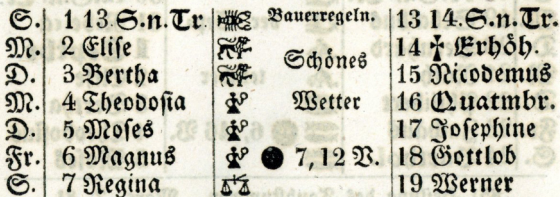 S. 1 13. S. n. Tr. Bauerregeln. 13 14. S. n. Tr.
M. 2 Elise Schönes 14 † Erhöh.
D. 3 Bertha 15 Nicodemus
M. 4 Theodosia Wetter 16 Quatmbr.
D. 5 Moses 17 Josephine
Fr. 6 Magnus 7,12 V. 18 Gottlob
S. 7 Regina 19 Werner